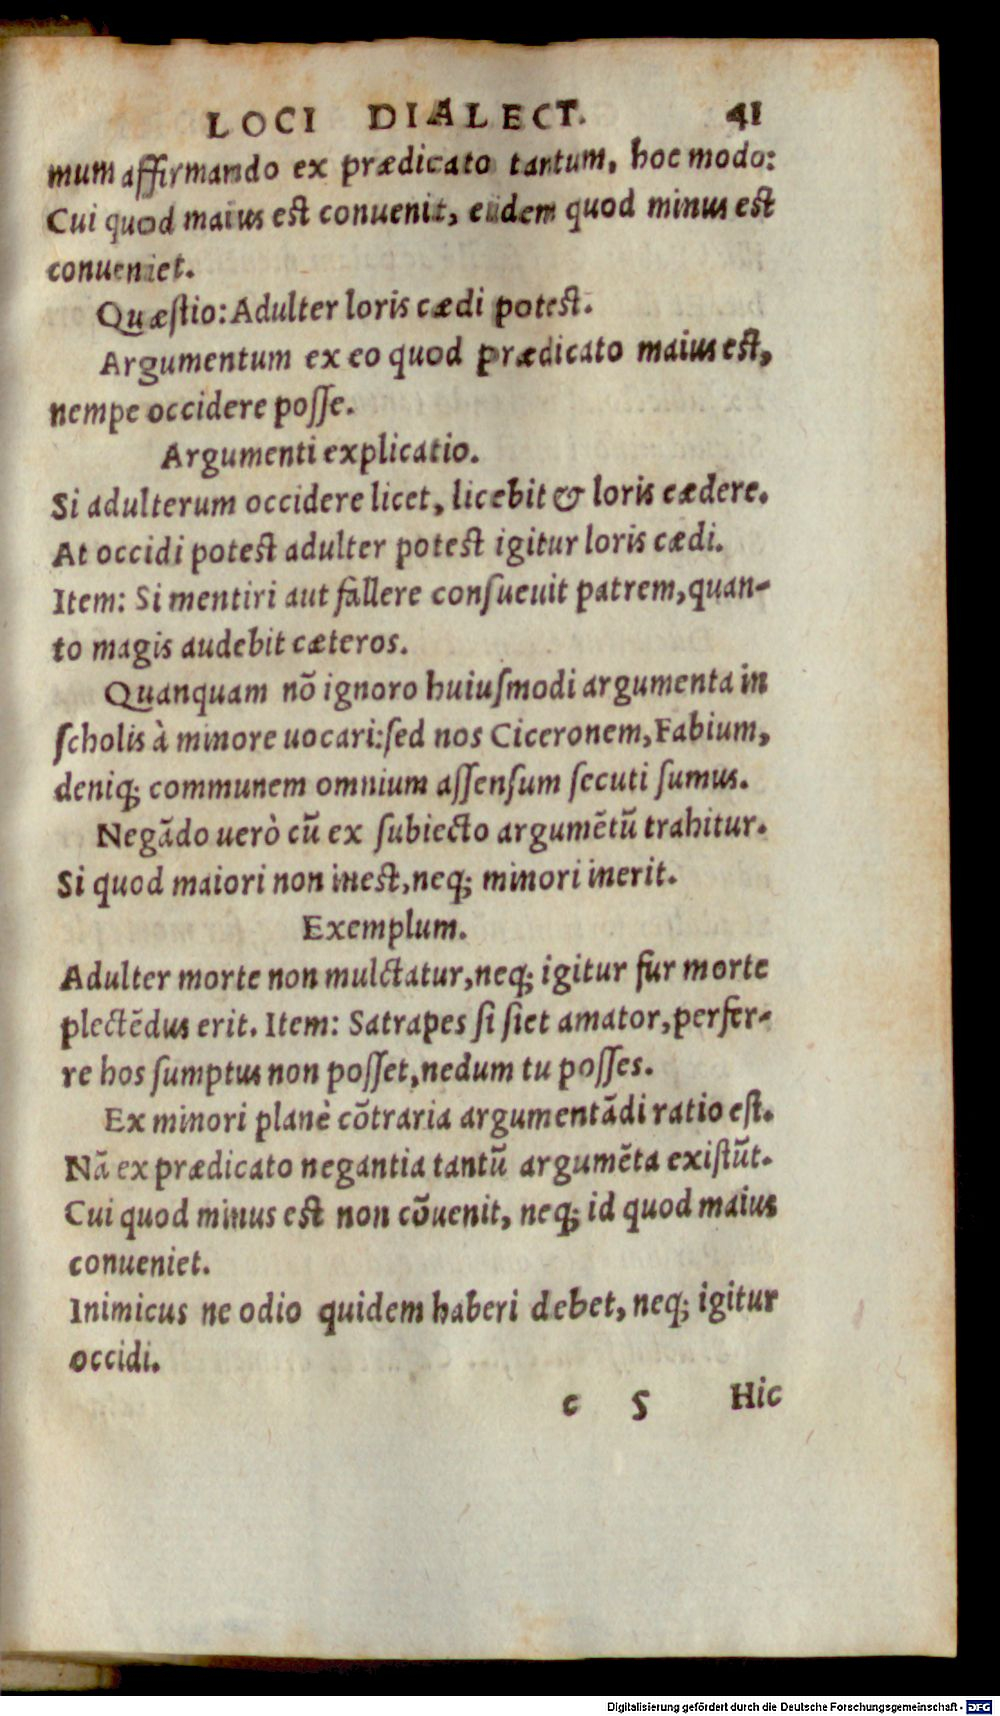 LOCI DIALECT. 41
mum affirmando ex prædicato tantum, hoc modo:
Cui quod maius est conuenit, eidem quod minus est
conueniet.
Quæſtio: Adulter loris cædi potest.
Argumentum ex eo quod prædicato maius eſt,
nempe occidere poſſe.
Argumenti explicatio.
Si adulterum occidere licet, licebit & loris cædere.
At occidi potest adulter potest igitur loris cædi.
Item: Si mentiri aut fallere conſueuit patrem, quan-
to magis audebit cæteros.
Quanquam nō ignoro huiuſmodi argumenta in
ſcholis à minore uocari: ſed nos Ciceronem, Fabium,
deniq; communem omnium aſſenſum ſecuti ſumus.
Negādo uerò cū ex ſubiecto argumētū trahitur.
Si quod maiori non inest, neq; minori inerit.
Exemplum.
Adulter morte non mulctatur, neq; igitur fur morte
plectēdus erit. Item: Satrapes ſi ſiet amator, perfer-
re hos ſumptus non poſſet, nedum tu poſſes.
Ex minori planè cōtraria argumentādi ratio eſt.
Nā ex prædicato negantia tantū argumēta exiſtūt.
Cui quod minus est non cōuenit, neq; id quod maius
conueniet.
Inimicus ne odio quidem haberi debet, neq; igitur
occidi.
c 5 Hic
Digitalisierung gefördert durch die Deutsche Forschungsgemeinschaft - DFG